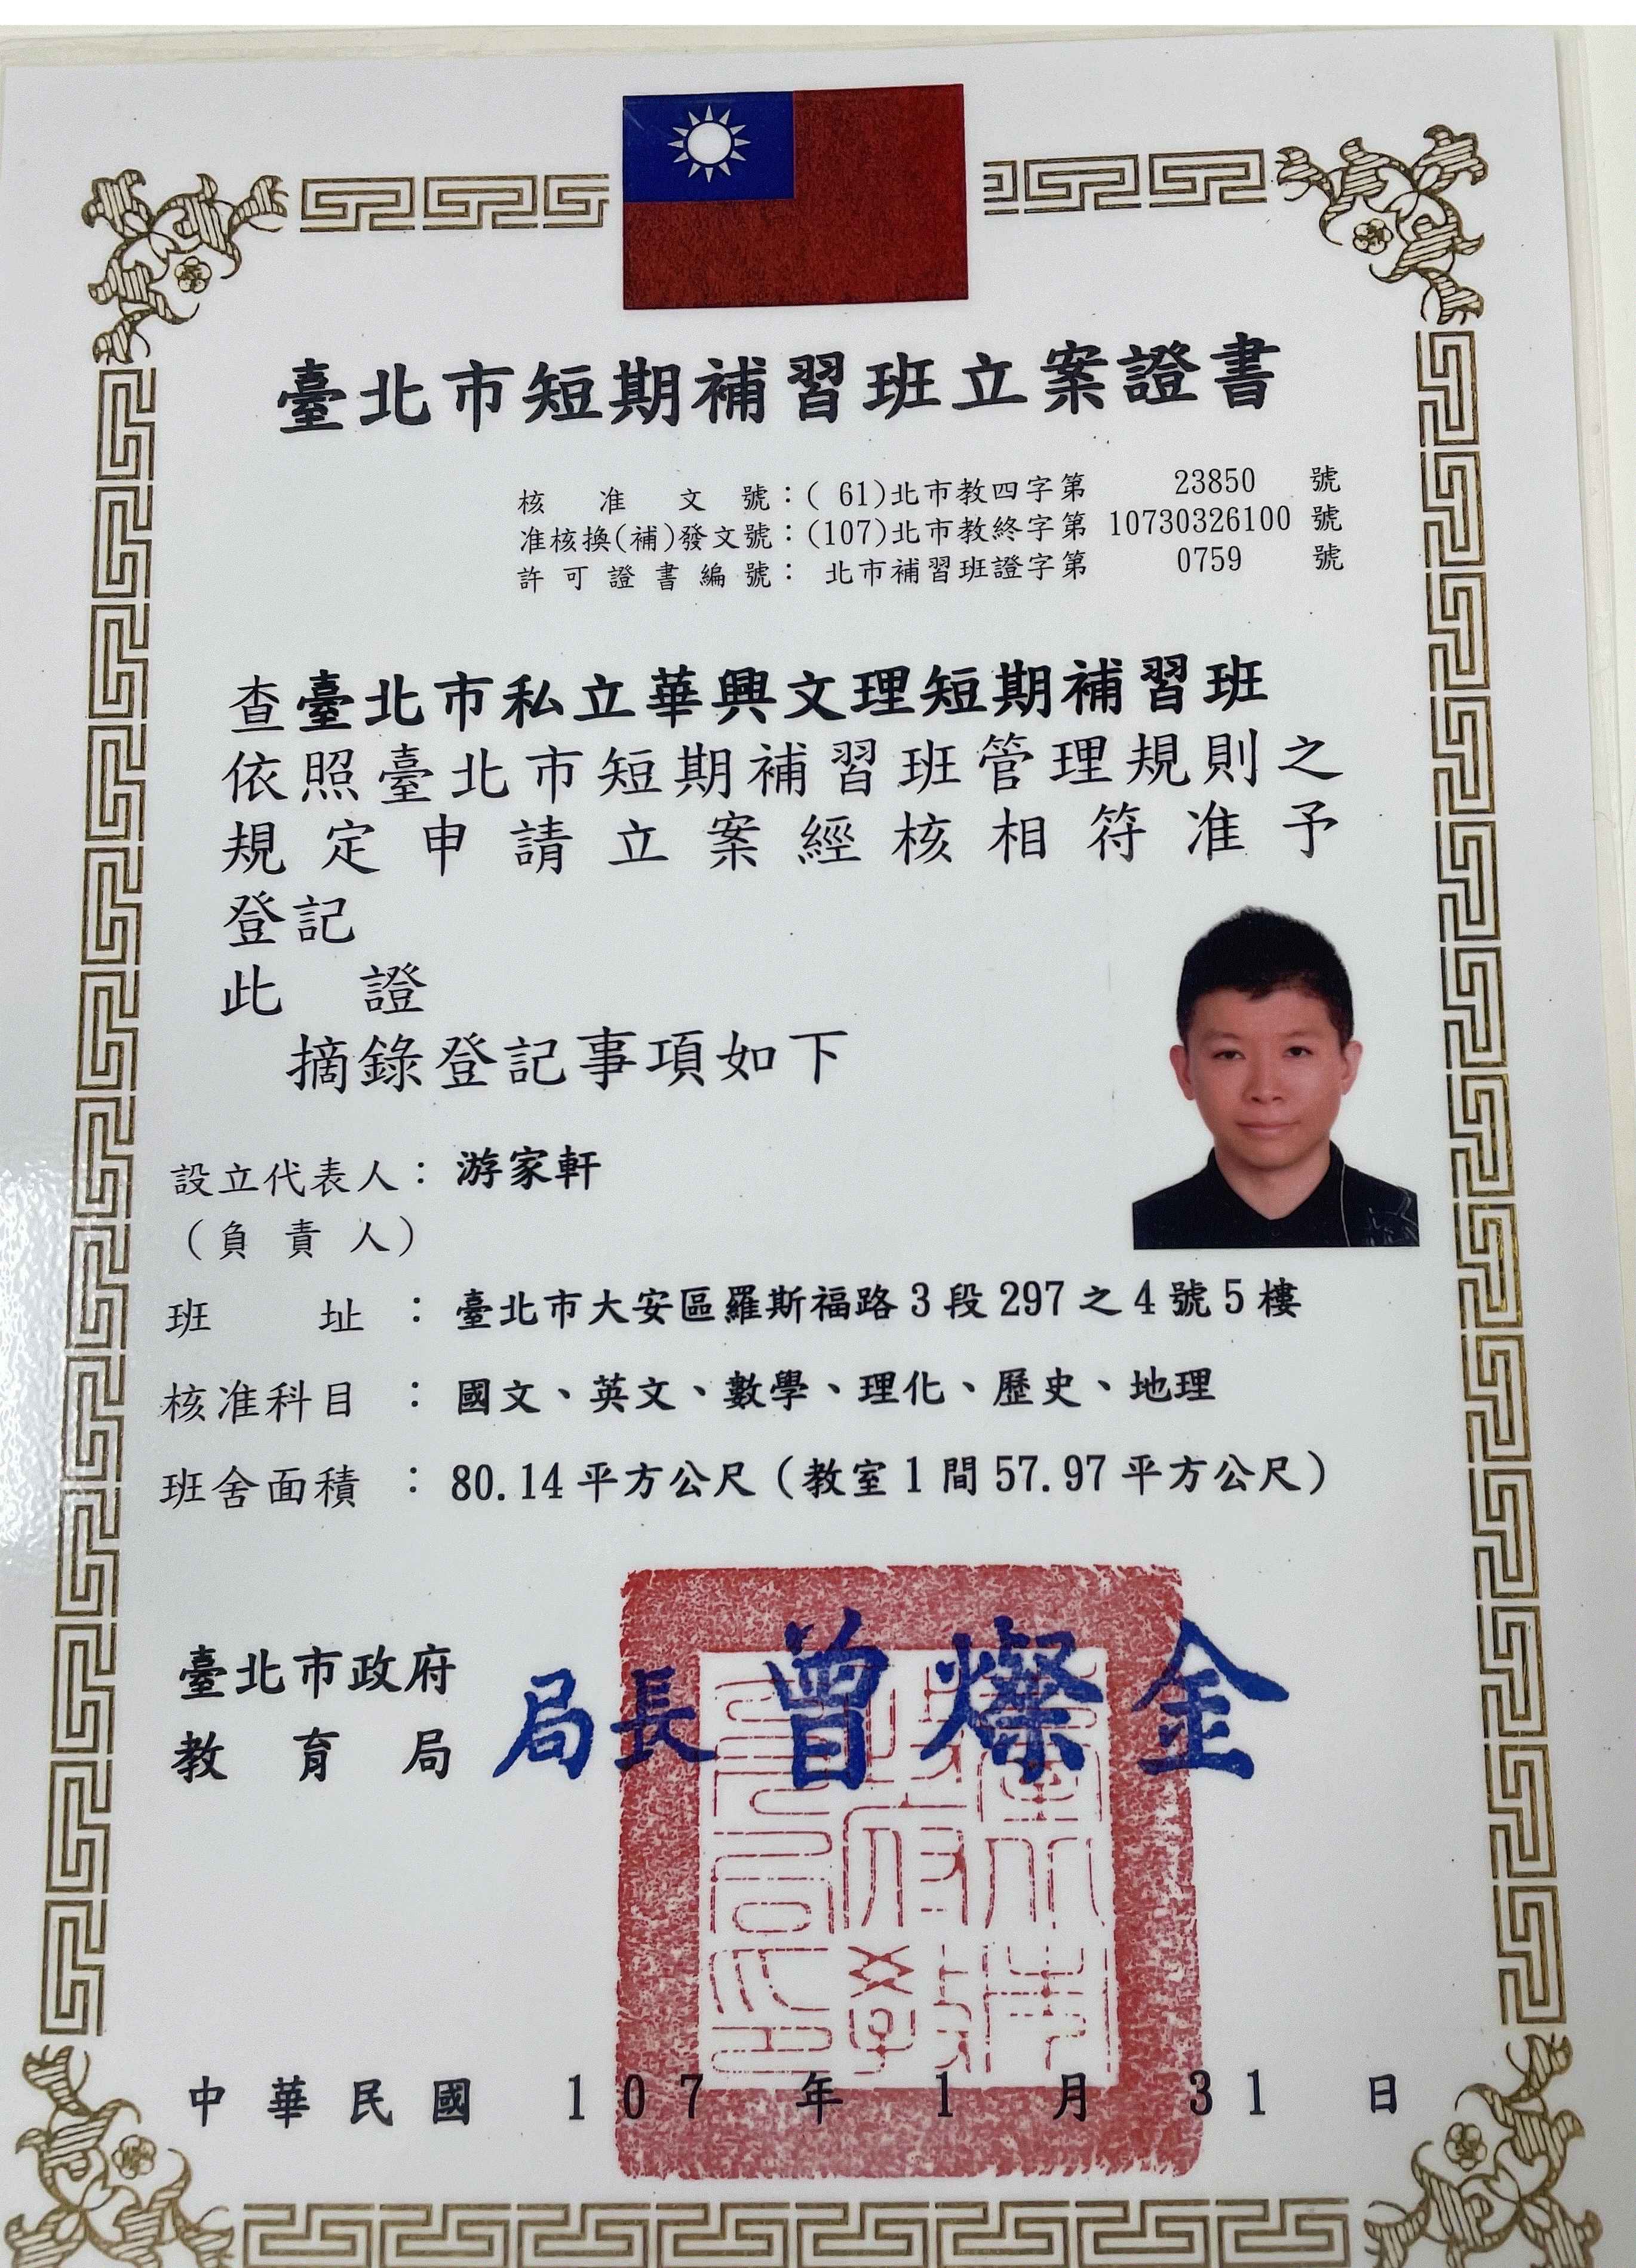 臺北市短期補習班立案證書
核准文號：( 61)北市教四字第 23850 號
准核換(補)發文號：(107)北市教終字第 10730326100 號
許可證書編號： 北市補習班證字第 0759 號
查臺北市私立華興文理短期補習班
依照臺北市短期補習班管理規則之
規定申請立案經核相符准予
登記
此 證
摘錄登記事項如下
設立代表人：游家軒
（負責人）
班 址：臺北市大安區羅斯福路3段297之4號5樓
核准科目：國文、英文、數學、理化、歷史、地理
班舍面積：80.14平方公尺（教室1間57.97平方公尺）
臺北市政府
教育局 局長 曾燦金
中華民國 107 年 1 月 31 日